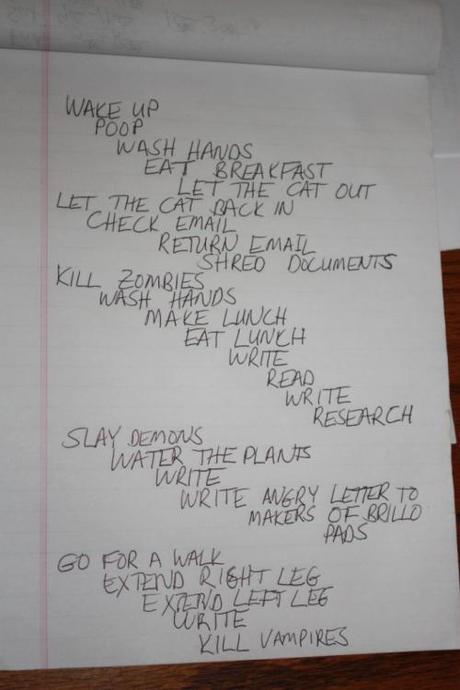 WAKE UP
POOP
WASH HANDS
EAT BREAKFAST
LET THE CAT OUT
LET THE CAT BACK IN
CHECK EMAIL
RETURN EMAIL
SHRED DOCUMENTS
KILL ZOMBIES
WASH HANDS
MAKE LUNCH
EAT LUNCH
WRITE
READ
WRITE
RESEARCH
SLAY DEMONS
WATER THE PLANTS
WRITE
WRITE ANGRY LETTER TO
MAKERS OF BRILLO
PADS
GO FOR A WALK
EXTEND RIGHT LEG
EXTEND LEFT LEG
WRITE
KILL VAMPIRES